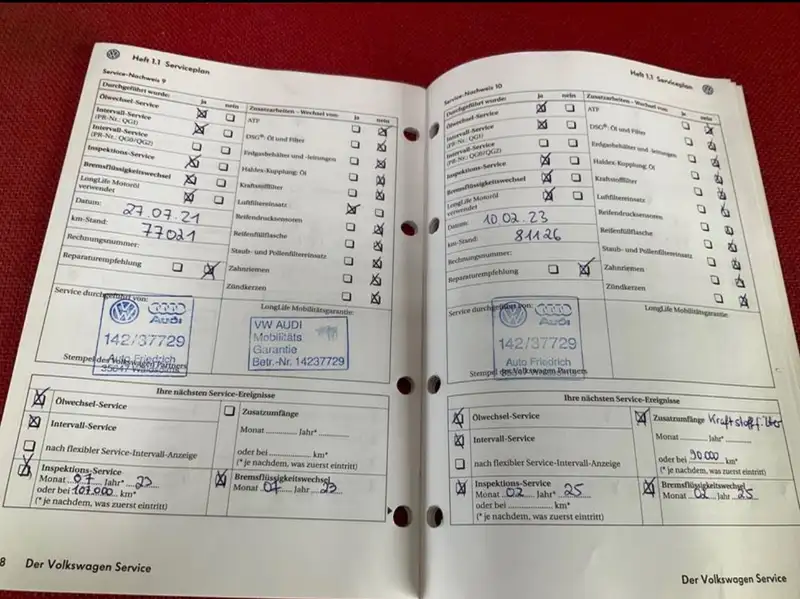 Heft 1.1 Serviceplan
Service-Nachweis 9
Durchgeführt wurde: ja nein
Ölwechsel-Service
Intervall-Service
(PR-Nr.: QG1)
Intervall-Service
(PR-Nr.: QG0/QG2)
Inspektions-Service
Bremsflüssigkeitswechsel
LongLife Motoröl
verwendet
Datum: 27.07.21
km-Stand: 77021
Rechnungsnummer:
Reparaturempfehlung
Zusatzarbeiten - Wechsel von: ja nein
ATF
DSG®: Öl und Filter
Erdgasbehälter und -leitungen
Haldex-Kupplung: Öl
Kraftstofffilter
Luftfiltereinsatz
Reifendrucksensoren
Reifenfüllflasche
Staub- und Pollenfiltereinsatz
Zahnriemen
Zündkerzen
Service durchgeführt von:
Audi
142/37729
Auto Friedrich
Stempel des Volkswagen Partners
LongLife Mobilitätsgarantie:
VW AUDI
Mobilitäts
Garantie
Betr.-Nr. 14237729
Ihre nächsten Service-Ereignisse
Ölwechsel-Service
Intervall-Service
nach flexibler Service-Intervall-Anzeige
Inspektions-Service
Monat 07 Jahr* 23
oder bei 107.000 km*
(* je nachdem, was zuerst eintritt)
Zusatzumfänge
Monat Jahr*
oder bei km*
(* je nachdem, was zuerst eintritt)
Bremsflüssigkeitswechsel
Monat 07 Jahr 23
8 Der Volkswagen Service
Heft 1.1 Serviceplan
Service-Nachweis 10
Durchgeführt wurde: ja nein
Ölwechsel-Service
Intervall-Service
(PR-Nr.: QG1)
Intervall-Service
(PR-Nr.: QG0/QG2)
Inspektions-Service
Bremsflüssigkeitswechsel
LongLife Motoröl
verwendet
Datum: 10 02. 23
km-Stand: 81126
Rechnungsnummer:
Reparaturempfehlung
Zusatzarbeiten - Wechsel von: ja nein
ATF
DSG®: Öl und Filter
Erdgasbehälter und -leitungen
Haldex-Kupplung: Öl
Kraftstofffilter
Luftfiltereinsatz
Reifendrucksensoren
Reifenfüllflasche
Staub- und Pollenfiltereinsatz
Zahnriemen
Zündkerzen
Service durchgeführt von:
Audi
142/37729
Auto Friedrich
Stempel des Volkswagen Partners
LongLife Mobilitätsgarantie:
Ihre nächsten Service-Ereignisse
Ölwechsel-Service
Intervall-Service
nach flexibler Service-Intervall-Anzeige
Inspektions-Service
Monat 02 Jahr* 25
oder bei km*
(* je nachdem, was zuerst eintritt)
Zusatzumfänge Kraftstofffilter
Monat Jahr*
oder bei 90.000 km*
(* je nachdem, was zuerst eintritt)
Bremsflüssigkeitswechsel
Monat 02 Jahr 25
Der Volkswagen Service